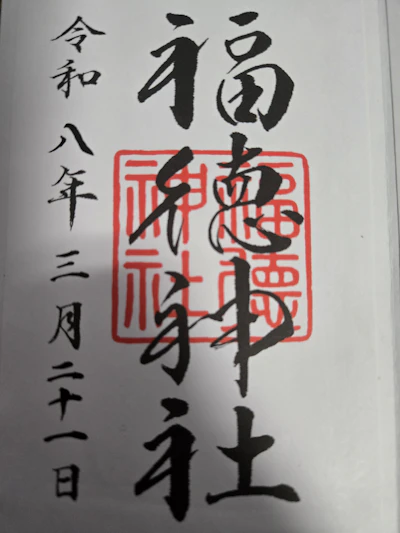 福徳神社
福徳神社
令和八年三月二十一日